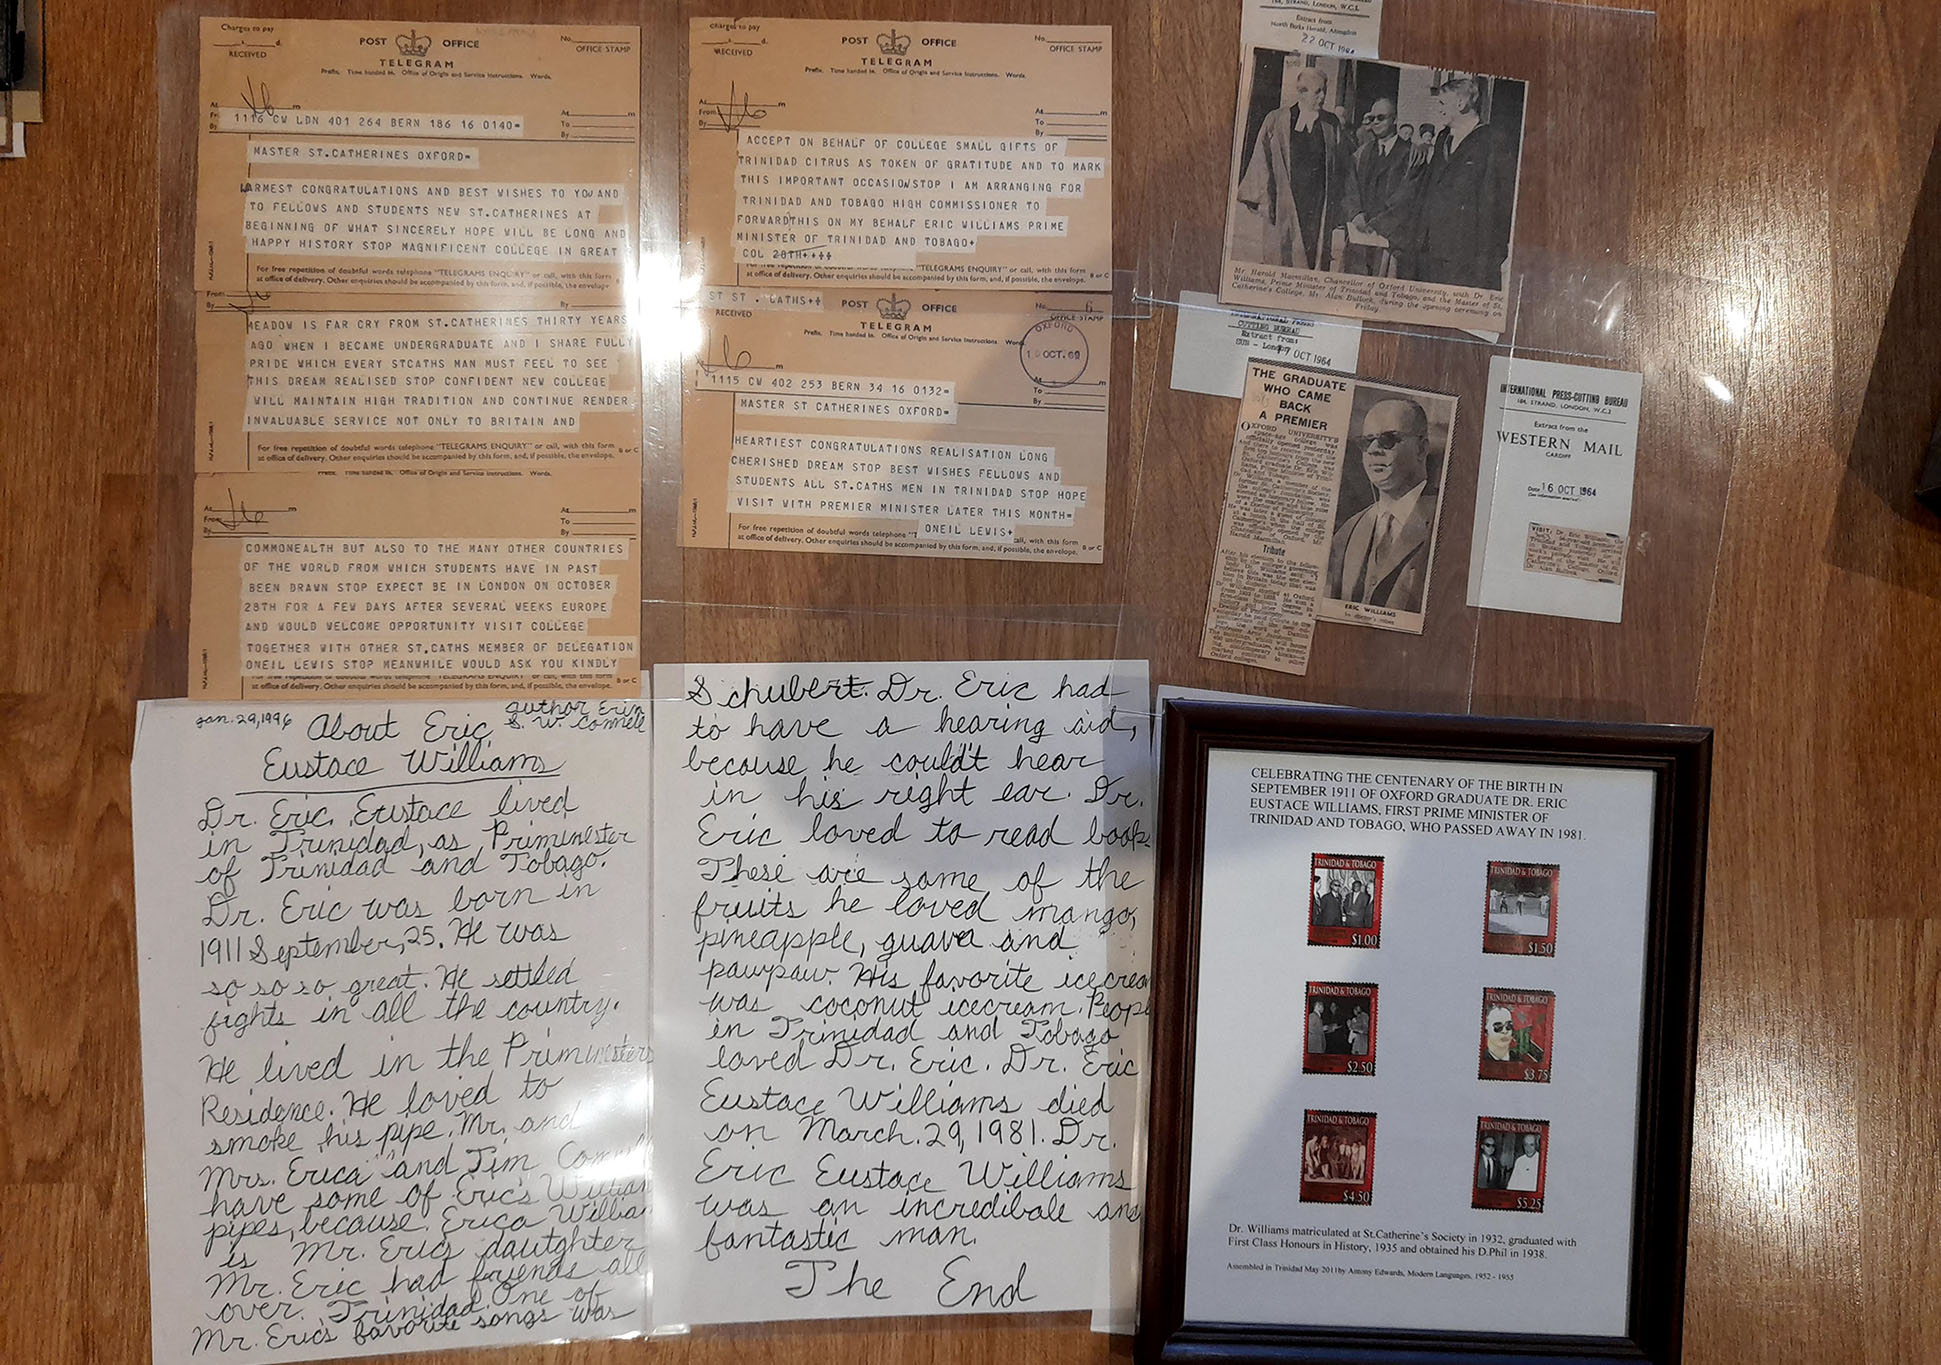 Charges to pay
RECEIVED
POST OFFICE
TELEGRAM
Prefix. Time handed in. Office of Origin and Service Instructions. Words.
No.
OFFICE STAMP
At m
From
By
At m
To
By
1116 CW LDN 401 264 BERN 186 16 0140=
MASTER ST.CATHERINES OXFORD=
WARMEST CONGRATULATIONS AND BEST WISHES TO YOU AND
TO FELLOWS AND STUDENTS NEW ST.CATHERINES AT
BEGINNING OF WHAT SINCERELY HOPE WILL BE LONG AND
HAPPY HISTORY STOP MAGNIFICENT COLLEGE IN GREAT
For free repetition of doubtful words telephone "TELEGRAMS ENQUIRY" or call, with this form
at office of delivery. Other enquiries should be accompanied by this form, and, if possible, the envelope
By
MEADOW IS FAR CRY FROM ST.CATHERINES THIRTY YEARS
AGO WHEN I BECAME UNDERGRADUATE AND I SHARE FULLY
PRIDE WHICH EVERY STCATHS MAN MUST FEEL TO SEE
THIS DREAM REALISED STOP CONFIDENT NEW COLLEGE
WILL MAINTAIN HIGH TRADITION AND CONTINUE RENDER
INVALUABLE SERVICE NOT ONLY TO BRITAIN AND
For free repetition of doubtful words telephone "TELEGRAMS ENQUIRY" or call, with this form
at office of delivery. Other enquiries should be accompanied by this form, and, if possible, the envelope.
B or C
Prefix. Time handed in. Office of Origin and Service Instructions. Words.
At m
From
By
At m
To
By
COMMONWEALTH BUT ALSO TO THE MANY OTHER COUNTRIES
OF THE WORLD FROM WHICH STUDENTS HAVE IN PAST
BEEN DRAWN STOP EXPECT BE IN LONDON ON OCTOBER
28TH FOR A FEW DAYS AFTER SEVERAL WEEKS EUROPE
AND WOULD WELCOME OPPORTUNITY VISIT COLLEGE
TOGETHER WITH OTHER ST.CATHS MEMBER OF DELEGATION
ONEIL LEWIS STOP MEANWHILE WOULD ASK YOU KINDLY
at office of delivery. Other enquiries should be accompanied by this form, and, if possible, the envelope.
B or C
Charges to pay
RECEIVED
POST OFFICE
TELEGRAM
Prefix. Time handed in. Office of Origin and Service Instructions. Words.
No.
OFFICE STAMP
At m
From
By
At m
To
By
ACCEPT ON BEHALF OF COLLEGE SMALL GIFTS OF
TRINIDAD CITRUS AS TOKEN OF GRATITUDE AND TO MARK
THIS IMPORTANT OCCASION STOP I AM ARRANGING FOR
TRINIDAD AND TOBAGO HIGH COMMISSIONER TO
FORWARD THIS ON MY BEHALF ERIC WILLIAMS PRIME
MINISTER OF TRINIDAD AND TOBAGO+
COL 28TH++++
For free repetition of doubtful words telephone "TELEGRAMS ENQUIRY" or call, with this form
at office of delivery. Other enquiries should be accompanied by this form, and, if possible, the envelope.
B or C
ST ST . CATHS++
RECEIVED
POST OFFICE
TELEGRAM
Prefix. Time handed in. Office of Origin and Service Instructions. Words.
No. 6
OFFICE STAMP
OXFORD
OCT.
1115 CW 402 253 BERN 34 16 0132=
MASTER ST CATHERINES OXFORD=
HEARTIEST CONGRATULATIONS REALISATION LONG
CHERISHED DREAM STOP BEST WISHES FELLOWS AND
STUDENTS ALL ST.CATHS MEN IN TRINIDAD STOP HOPE
VISIT WITH PREMIER MINISTER LATER THIS MONTH=
ONEIL LEWIS+
For free repetition of doubtful words telephone call, with this form
at office of delivery. Other enquiries should be accompanied by this form, and, if possible, the envelope.
B or C
184, STRAND, LONDON, W.C.2.
Extract from
North Berks Herald, Abingdon
22 OCT 1964
Mr Harold Macmillan, Chancellor of Oxford University, with Dr. Eric
Williams, Prime Minister of Trinidad and Tobago, and the Master of St.
Catherine's College, Mr. Alan Bullock, during the opening ceremony on
Friday.
CUTTING BUREAU
Extract from:
SUN - London
OCT 1964
THE GRADUATE
WHO CAME
BACK
A PREMIER
OXFORD UNIVERSITY'S
Tribute
ERIC WILLIAMS
INTERNATIONAL PRESS-CUTTING BUREAU
184, STRAND, LONDON, W.C.2
Extract from the
WESTERN MAIL
CARDIFF
Date 16 OCT 1964
Jan. 29, 1996
author Erin
S. W. Connell
About Eric
Eustace Williams
Dr. Eric Eustace lived
in Trinidad, as Priminester
of Trinidad and Tobago.
Dr. Eric was born in
1911 September, 25. He was
so so so great. He settled
fights in all the country.
He lived in the Priministers
Residence. He loved to
smoke his pipe. Mr. and
Mrs. Erica and Jim Connell
have some of Eric's William
pipes, because. Erica Willia
is Mr. Eric's dautghter
Mr. Eric had friends all
over. Trinidad. One of
Mr. Eric's favorite songs was
Schubert. Dr. Eric had
to have a hearing aid,
because he could't hear
in his right ear. Dr.
Eric loved to read books
These are some of the
fruits he loved mango,
pineapple, guava and
pawpaw. His favorite icecream
was coconut icecream. People
in Trinidad and Tobago
loved Dr. Eric. Dr. Eric
Eustace Williams died
on March. 29, 1981. Dr.
Eric Eustace Williams
was an incredibale and
fantastic man.
The End
CELEBRATING THE CENTENARY OF THE BIRTH IN
SEPTEMBER 1911 OF OXFORD GRADUATE DR. ERIC
EUSTACE WILLIAMS, FIRST PRIME MINISTER OF
TRINIDAD AND TOBAGO, WHO PASSED AWAY IN 1981.
TRINIDAD & TOBAGO
$1.00
TRINIDAD & TOBAGO
$1.50
TRINIDAD & TOBAGO
$2.50
TRINIDAD & TOBAGO
$3.75
TRINIDAD & TOBAGO
$4.50
TRINIDAD & TOBAGO
$5.25
Dr. Williams matriculated at St.Catherine's Society in 1932, graduated with
First Class Honours in History, 1935 and obtained his D.Phil in 1938.
Assembled in Trinidad May 2011by Antony Edwards, Modern Languages, 1952 - 1955